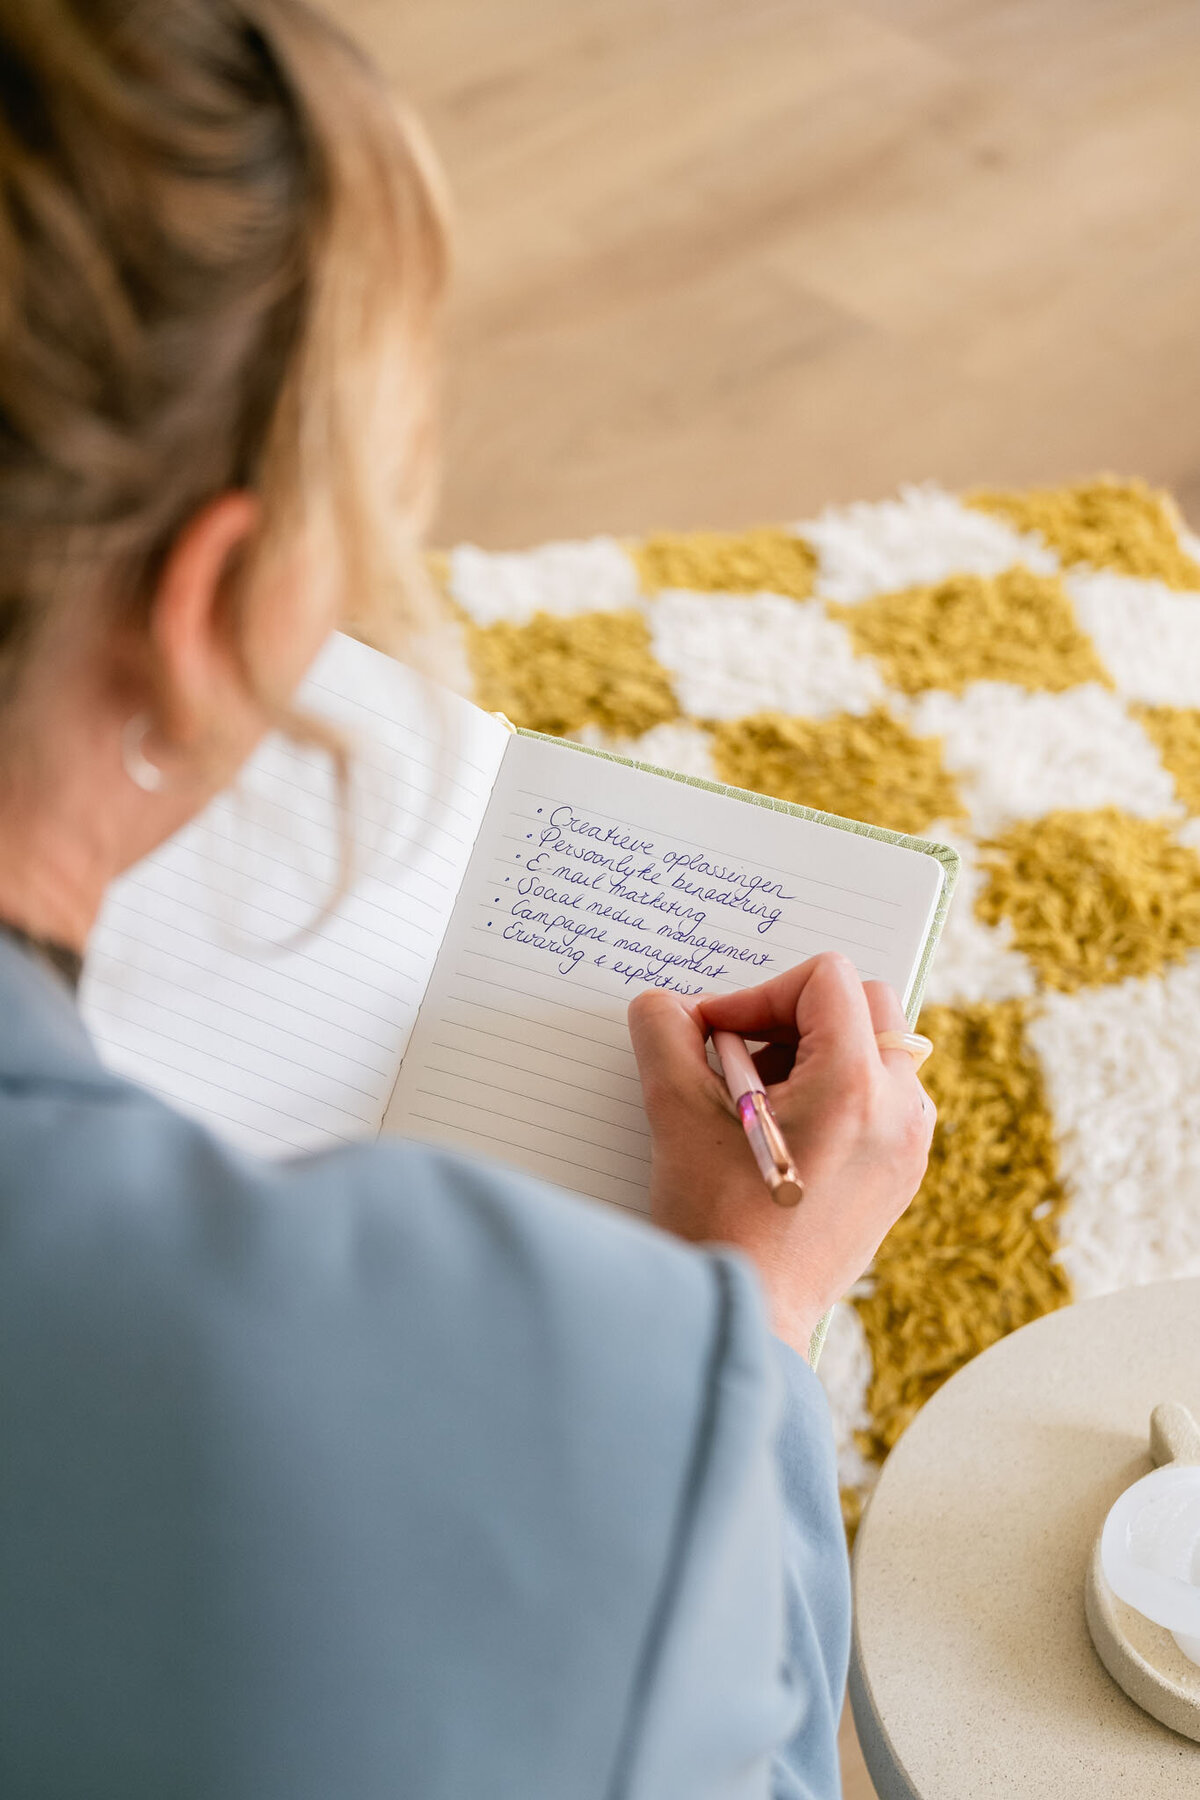 • Creatieve oplossingen
• Persoonlyke benadering
• E-mail marketing
• Social media management
• Campagne management
• Ervaring & expertise